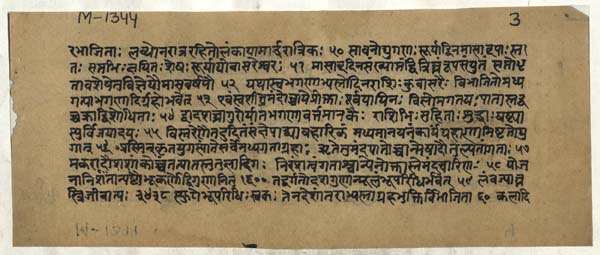 M-1344
3
रभाजिताः लब्धोनरात्ररहितोलंकायामार्द्धरात्रिकः ५० सावनोद्युगणः सूर्याद्दिनमासाब्दपाः स्त
तः सप्तभिः क्षयितः शेषः सूर्याद्योवासरेश्वरः ५१ मासाब्ददिनसंख्याप्तंद्वित्रिघ्नंरूपसंयुतं सप्तोद्धृ
तावशेषेतुविज्ञेयौमासवर्षपौ ५२ यथास्वभगणाभ्यस्तोदिनराशिः कुवासरैः विभाजितोमध्य
गत्याभगणादिर्ग्रहोभवेत् ५३ एवंस्वशीघ्रमंदोच्चायेप्रोक्ताः पूर्वयायिनः विलोमगतयः पातास्तद्व
च्चक्राद्विशोधिताः ५४ द्वादशघ्नागुरोर्याताभगणावर्त्तमानकैः राशिभिः सहिताः शुद्धाः षष्ट्या
स्युर्विजयादयः ५५ विस्तरेणैतदुदितंसंक्षेपाद्व्यावहारिकं मध्यमानयनंकार्यंग्रहाणामिष्टतोयु
गात् ५६ अस्मिन्कृतयुगस्यांतेसर्वेमध्यगताग्रहाः ऋतेतुमंदपातोच्चान्मेषादौतुल्यतामिताः ५७
मकरादौशशांकोच्चंतत्पातस्तुतुलादिगः निरंशत्वंगताश्चान्येनोक्तास्तेमंदचारिणः ५८ योज
नानिशतान्यष्टौभूकर्णोद्विगुणानितु १६०० तद्वर्गतोदशगुणात्पदंभूपरिधिर्भवेत् ५९ लंबज्याघ्न
स्त्रिजीवाप्तः ३४३८ स्फुटोभूपरिधिः स्वकः तेनदेशांतराभ्यस्ताग्रहभुक्तिर्विभाजिता ६० कलादि